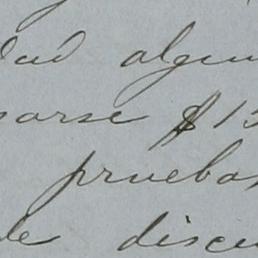 dad algun
parse $ 15
pruebas
de discu